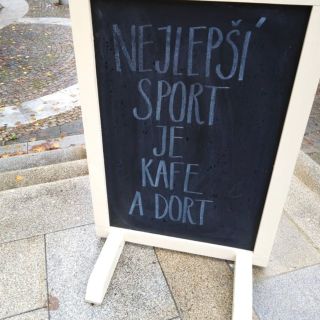 NEJLEPŠÍ
SPORT
JE
KAFE
A DORT